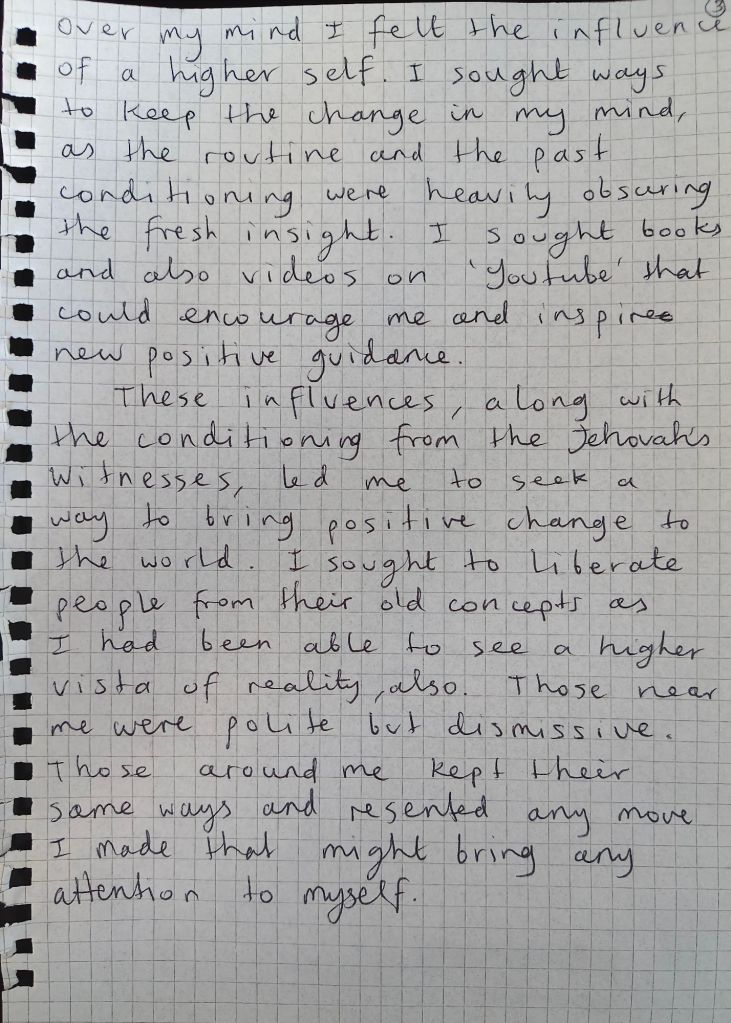 3
over my mind I felt the influence
of a higher self. I sought ways
to keep the change in my mind,
as the routine and the past
conditioning were heavily obscuring
the fresh insight. I sought books
and also videos on 'Youtube' that
could encourage me and inspire
new positive guidance.
These influences, along with
the conditioning from the Jehovah's
Witnesses, led me to seek a
way to bring positive change to
the world. I sought to liberate
people from their old concepts as
I had been able to see a higher
vista of reality, also. Those near
me were polite but dismissive.
Those around me kept their
same ways and resented any move
I made that might bring any
attention to myself.